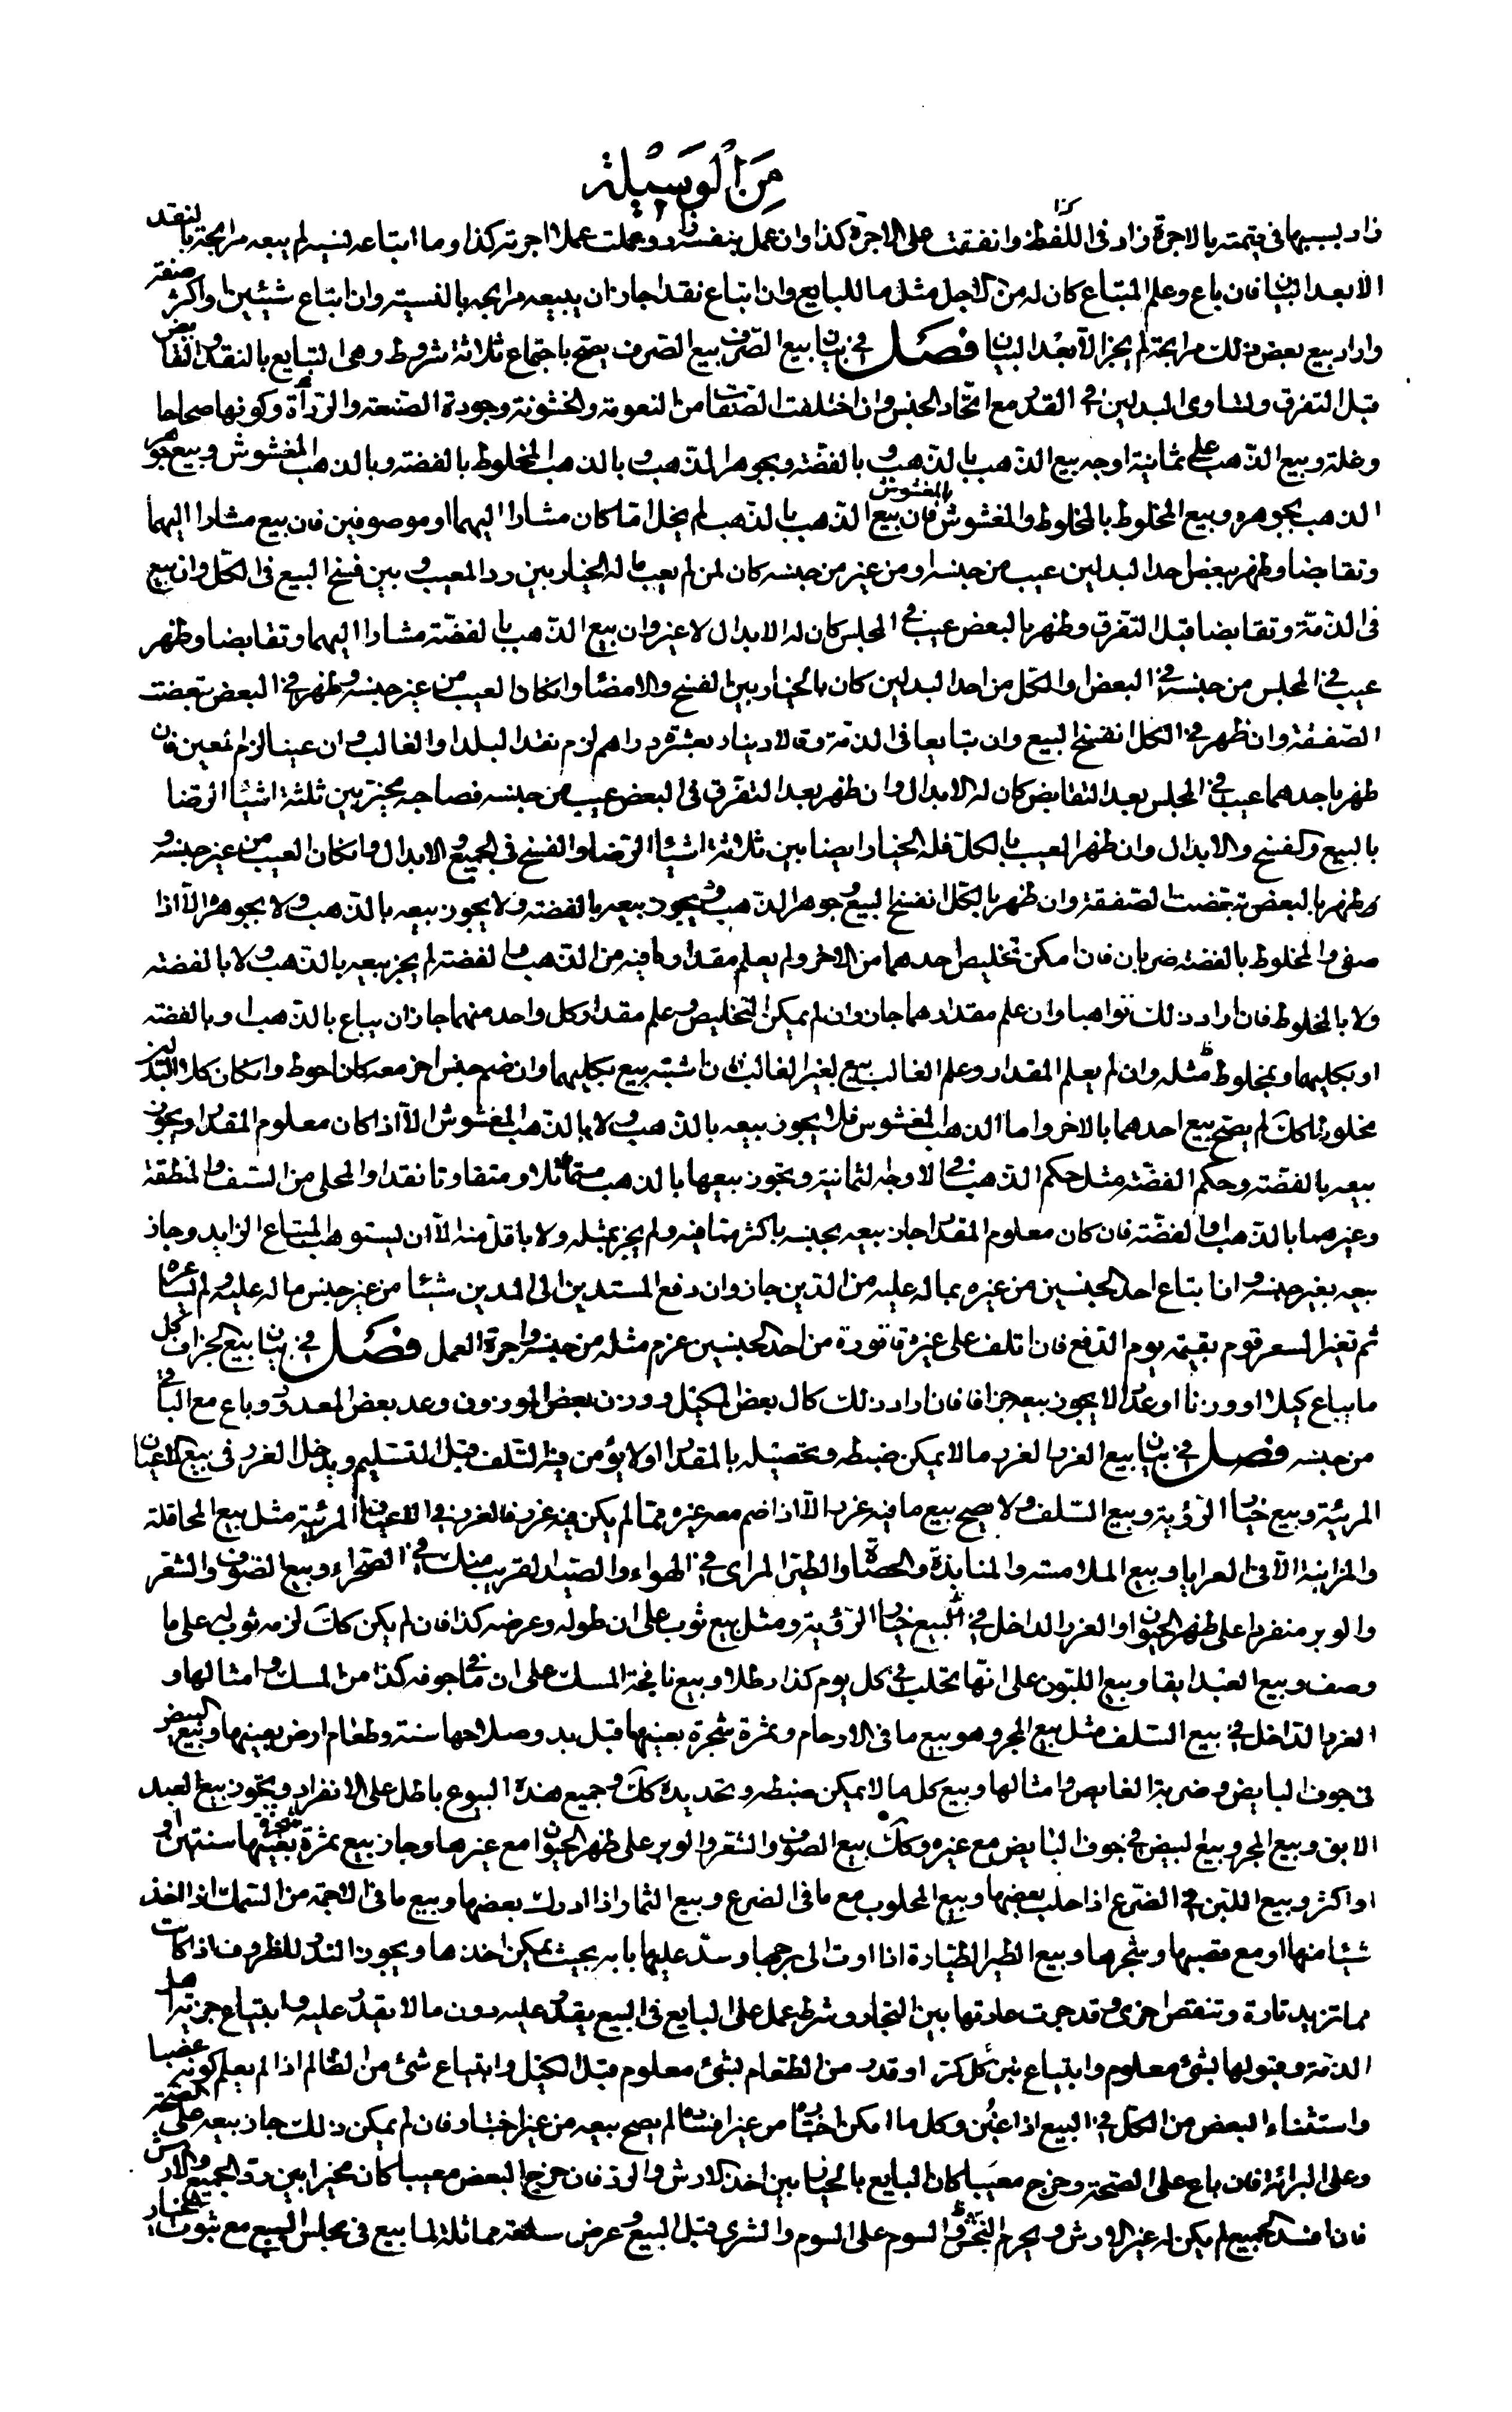 مِنَ الْوَسِيْلة
زاد بسببها فى قيمته بالاجرة زاد فى اللفظ وانفقت على الاجرة كذا وان عمل بنفسه زاد وعملت عملا اجرته كذا وما ابتاعه نسية لم يبعه مرابحة بالنقد
الا بعد البيان فان باع وعلم المبتاع كان له من الاجل مثل ما للبايع وان ابتاع نقدا جاز ان يبيعه مرابحه بالنسيئة وان ابتاع شيئين او اكثر صفقة
واراد بيع بعض ذلك مرابحة لم يجز الا بعد البيان فصل فى بيان بيع الصرف بيع الصرف يصح باجتماع ثلاثة شروط وهى التبايع بالنقد والتقابض
قبل التفرق وتساوى البدلين فى القدر مع اتحاد الجنس وان اختلفت الصفات من النعومة والخشونة وجودة الصنعة والردأة وكونها صحاحا
وغلة وبيع الذهب على ثمانية اوجه بيع الذهب بالذهب و بالفضة وبجوهر الذهب و بالذهب المخلوط بالفضة وبالذهب المغشوش وبيع جوهر
الذهب بجوهره وبيع المخلوط بالمخلوط والمغشوش بالمغشوش فان بيع الذهب بالذهب لم يخل اما كان مشارا اليهما او موصوفين فان بيع مشارا اليهما
وتقابضا وظهر ببعض احد البدلين عيب من جنسه او من غير جنسه كان لمن لم يعب ماله الخيار بين رد المعيب و بين فسخ البيع فى الكل وان بيع
فى الذمة وتقابضا قبل التفرق وظهر بالبعض عيب فى المجلس كان له الابدال لا غير وان بيع الذهب بالفضة مشارا اليهما وتقابضا وظهر
عيب فى المجلس من جنسه فى البعض او الكل من احد البدلين كان بالخيار بين الفسخ والامضاء وان كان العيب من غير جنسه وظهر فى البعض تبعضت
الصفقة وان ظهر فى الكل انفسخ البيع وان تبايعا فى الذمة وقالا دينار بعشرة دراهم لزم نقد البلد او الغالب وان عينا لزم المعين فان
ظهر باحدهما عيب فى المجلس بعد التقابض كان له الابدال وان ظهر بعد التفرق فى البعض عيب من جنسه فصاحبه مخير بين ثلثة اشياء الرضا
بالبيع والفسخ والابدال وان ظهر العيب بالكل فله الخيار ايضا بين ثلاثة اشياء الرضا والفسخ فى الجميع و الابدال وان كان العيب من غير جنسه و
ظهر بالبعض تبعضت الصفقة وان ظهر بالكل انفسخ البيع و جوهر الذهب يجوز بيعه بالفضة ولا يجوز بيعه بالذهب ولا بجوهره الا اذا
صفى والمخلوط بالفضة ضربان فان امكن تخليص احدهما من الاخر ولم يعلم مقدار ما فيه من الذهب والفضة لم يجز بيعه بالذهب ولا بالفضة
ولا بالمخلوط فان اراد ذلك تواهبا وان علم مقدارهما جاز وان لم يمكن التخليص وعلم مقدار كل واحد منهما جاز ان يباع بالذهب او بالفضة
او بكليهما و بمخلوط مثله وان لم يعلم المقدار وعلم الغالب بيع بغير الغالب فان اشتبه بيع بكليهما وان ضم جنس اخر معه كان احوط وان كان كلا البدلين
مخلوطا كك لم يصح بيع احدهما بالاخر واما الذهب المغشوش فلا يجوز بيعه بالذهب ولا بالذهب المغشوش الا اذا كان معلوم المقدار ويجوز
بيعه بالفضة وحكم الفضة مثل حكم الذهب فى الاوجه الثمانية ويجوز بيعها بالذهب متماثلا و متفاوتا نقدا والمحلى من السيف والمنطقة
وغيرهما بالذهب والفضة فان كان معلوم المقدار جاز بيعه بجنسه باكثر مما فيه ولم يجز بمثله ولا باقل منه الا ان يستوهب المبتاع الزايد وجاز
بيعه بغير جنسه وان ابتاع احد الجنسين من غيره بما له عليه من الدين جاز وان دفع المستدين الى المدين شيئا من غير جنس ما له عليه ولم يساعره
ثم تغير السعر قوم بقيمته يوم الدفع فان اتلف على غيره قارورة من احد الجنسين غرم مثله من جنسه واجرة العمل فصل فى بيان بيع الجزاف كل
ما يباع كيلا او وزنا او عدا لا يجوز بيعه جزافا فان اراد ذلك كال بعض المكيل ووزن بعض الموزون وعد بعض المعدود وباع مع الباقى
من جنسه فصل فى بيان بيع الغرر الغرر ما لا يمكن ضبطه وتحصيله بالمقدار او لا يؤمن فيه التلف قبل التسليم ويدخل الغرر فى بيع الاعيان
المرئية وبيع خيار الرؤية وبيع السلف ولا يصح بيع ما فيه غرر الا اذا ضم معه غيره مما لم يكن فيه غرر فالغرر فى الاعيان المرئية مثل بيع المحاقلة
والمزابنة الا فى العرايا وبيع الملامسة والمنابذة والحصاة والطير المراى فى الهواء والصيد القريب منك فى الصحراء وبيع الصوف والشعر
والوبر منفردا على ظهر الحيوان او الغرر الداخل فى البيع خيار الرؤية ومثل بيع ثوب على ان طوله وعرضه كذا فان لم يكن كك لزمه ثوب له على ما
وصف وبيع العبد ابقا وبيع اللبون على انها تحلب فى كل يوم كذا رطلا وبيع نافجة المسك على ان ما فى جوفه كذا من المسك و امثالها و
الغرر الداخل فى بيع السلف مثل بيع المجر وهو بيع ما فى الارحام وثمرة شجرة بعينها قبل بدو صلاحها سنة وطعام ارض بعينها وبيع البيض
فى جوف البايض و ضربة الغايص وامثالها وبيع كل ما لا يمكن ضبطه وتحديده كك وجميع هذه البيوع باطل على الانفراد ويجوز بيع العبد
الابق وبيع المجر وبيع البيض فى جوف البايض مع غيره وكك بيع الصوف والشعر والوبر على ظهر الحيوان مع غيرها وجاز بيع ثمرة شجرة بعينها سنتين او
او اكثر وبيع اللبن فى الضرع اذا حلب بعضها وبيع المحلوب مع ما فى الضرع وبيع الثمار اذا ادرك بعضها وبيع ما فى الاجمة من السمك اذا اخذ
شيئا منها او مع قصبها وشجرها وبيع الطير الطيارة اذا اوت الى برجها وسد عليها بابه بحيث يمكن اخذها ويجوز الندر للظروف اذا كانت
مما تزيد تارة وتنقص اخرى وقد جرت عادتها بين التجار وشرط عمل على البايع فى البيع يقدر عليه دون ما لا يقدر عليه وابتياع جزية اهل
الذمة وقبولها بشئ معلوم وابتياع تبن كل كر او قدر من الطعام بشئ معلوم قبل الكيل وابتياع شئ من الظالم اذا لم يعلم كونه غصبا
واستثناء البعض من الكل فى البيع اذا عين وكل ما امكن اختباره من غير افساده لم يصح بيعه من غير اختبار فان لم يمكن ذلك جاز بيعه على الصحة
وعلى البرائة فان باع على الصحة وخرج معيبا كان البايع بالخيار بين اخذ الارش والرد فان خرج البعض معيبا كان مخيرا بين رد الجميع والارش
فان افسد الجميع لم يكن له غير الارش ويحرم النجش والسوم على السوم والشرى قبل البيع و عرض سلعته مماثلة لما بيع فى مجلس البيع مع ثبوت الخيار